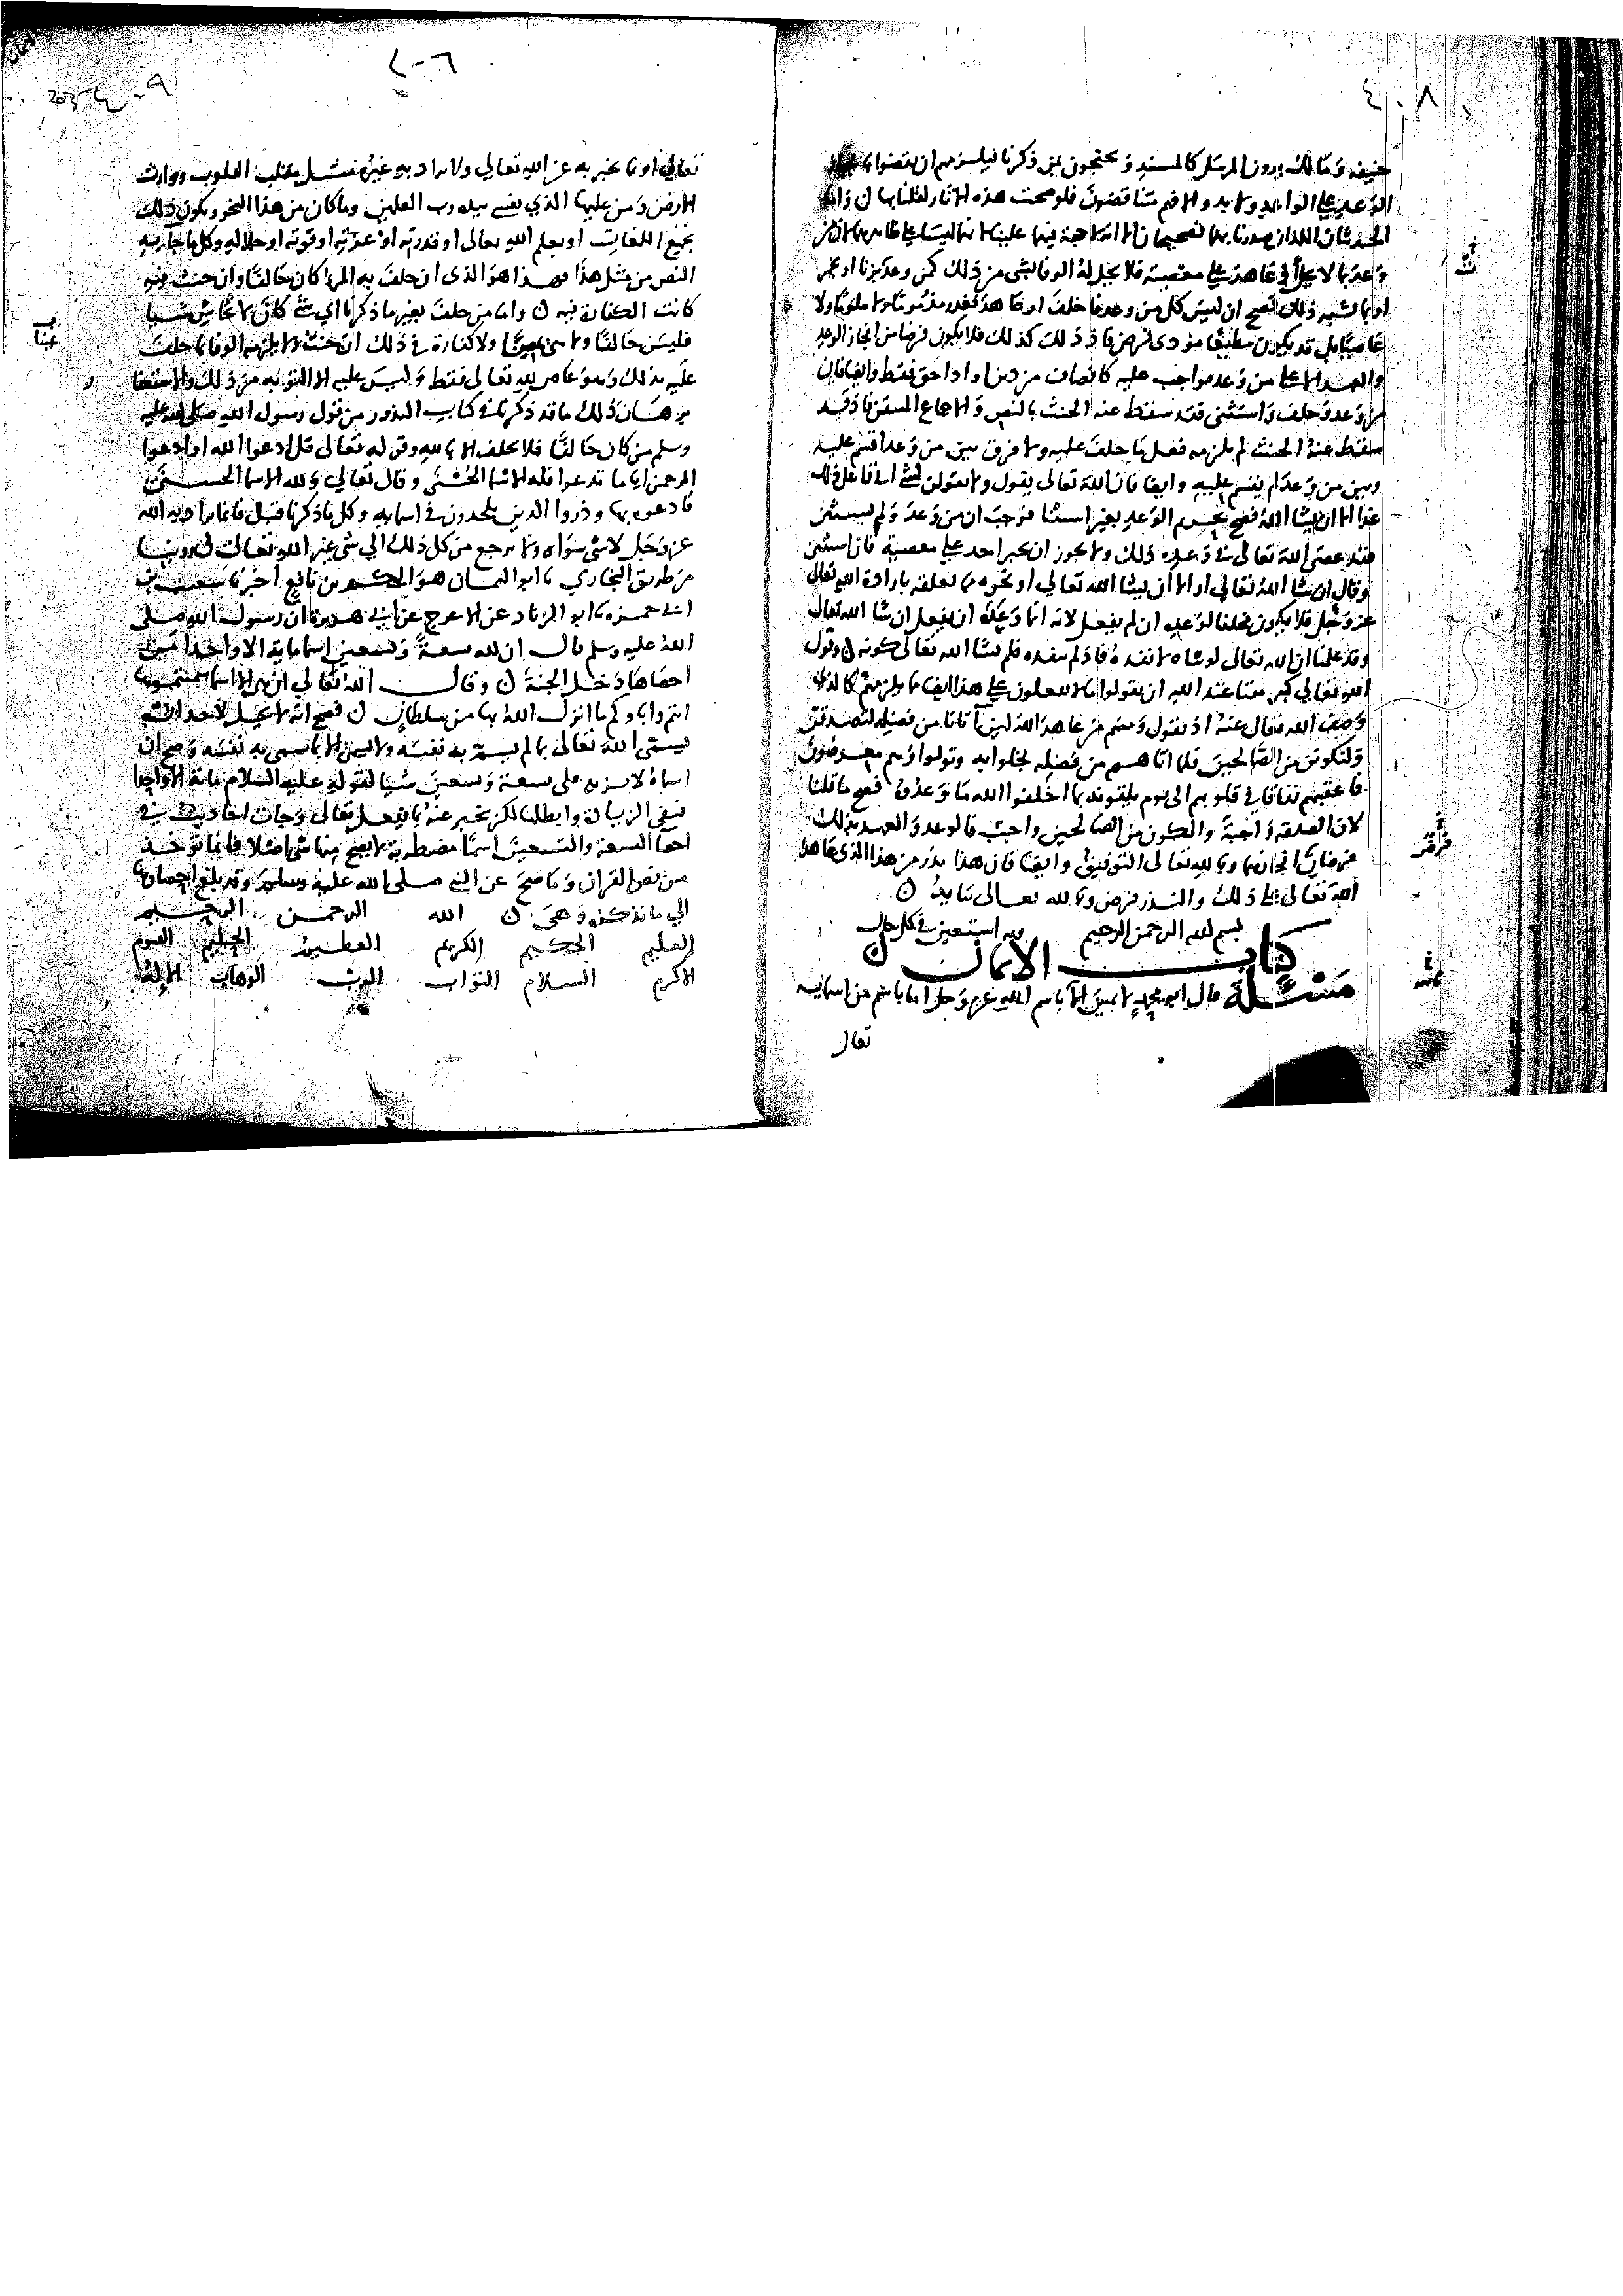 ٤٠٨
حنيفه ومالك يرون المرسل كالمسند ويحتجون بمن ذكرنا فيلزمهم ان يقضوا
الوعد على الواعد ولا بد والا فهم متناقضون فلو صحت هذه الاثار لقلنا بها ن واما
الحديثان اللذان صدرنا بهما فصحيحان الا انه لا حجة فيهما علينا لانهما ليسا على ظاهرهما لان من
وعد بما لا يحل او عاهد على معصية فلا يحل له الوفا بشي من ذلك كمن وعد بزنا او بخمر
او بما يشبه ذلك فصح ان ليس كل من وعد فاخلف او عاهد فغدر مذموما ولا ملوما ولا
عاصيا بل قد يكون مطيعا مودى فرض فاذ ذلك كذلك فلا يكون فرضا من انجاز الوعد
والعهد الا على من وعد بواجب عليه كانصاف من دين او اداحق فقط وايضا فان
من وعد وحلف واستثنى فقد سقط عنه الحنث بالنص والاجماع المتيقن فاذ قد
سقط عنه الحنث لم يلزمه فعل ما حلف عليه ولا فرق بين من وعد اقسم عليه
وبين من وعد لم يقسم عليه وايضا فان الله تعالى يقول ولا تقولن لشي اني فاعل ذلك
غدا الا ان يشا الله فصح تحريم الوعد بغير استثنا فوجب ان من وعد ولم يستثن
فقد عصى الله تعالى في وعده ذلك ولا يجوز ان يجبر احد على معصية فان استثنى
وقال ان شا الله تعالى او الا ان يشا الله تعالى او نحوه مما يعلقه بارادة الله تعالى
عز وجل فلا يكون مخلفا لوعده ان لم يفعل لانه انما وعده ان يفعل ان شا الله تعالى
وقد علمنا ان الله تعالى لو شاه لانفذه فاذ لم ينفذه فلم يشا الله تعالى كونه ن وقول
الله تعالى كبر مقتا عند الله ان تقولوا ما لا تفعلون على هذا ايضا مما يلزمهم كالذي
وصف الله تعالى عنه اذ يقول ومنهم من عاهد الله لين اتانا من فضله لنصدقن
ولنكونن من الصالحين فلما اتاهم من فضله بخلوا به وتولوا وهم معرضون
فاعقبهم نفاقا في قلوبهم الى يوم يلقونه بما اخلفوا الله ما وعدوه فصح ما قلنا
لان الصدقه واجبة والكون من الصالحين واجب فالوعد والعهد بذلك
فرضان انجازهما وبالله تعالى التوفيق وايضا فان هذا نذر من هذا الذي عاهد
الله تعالى على ذلك والنذر فرض وبالله تعالى نتايد ن
بسم الله الرحمن الرحيم وبه استعين في كل حال
كتاب الايمان ن
مسئلة قال ابو محمد لا يمين الا باسم الله عز وجل اما باسم من اسمايه
تعال
تعالى او بما يخبر به عن الله تعالى ولا يراد به غيره مثل مقلب القلوب ووارث
الارض ومن عليها الذي نفسي بيده رب العلمين وما كان من هذا النحو ويكون ذلك
بجميع اللغات او بعلم الله تعالى او قدرته او عزته او قوته او جلاله وكل ما جا به
النص من مثل هذا فهذا هو الذي ان حلف به المرء كان حالفا وان حنث فيه
كانت الكفارة فيه ن واما من حلف بغير ما ذكرنا اي شي كان لا تحاش شيا
فليس حالفا ولا هي يمينا ولا كفارة في ذلك ان حنث ولا يلزمه الوفا بما حلف
عليه بذلك وهو عاص لله تعالى فقط وليس عليه الا التوبة من ذلك والاستغفار
برهان ذلك ما قد ذكرناه في كتاب النذور من قول رسول الله صلى الله عليه
وسلم من كان حالفا فلا يحلف الا بالله وقوله تعالى قل ادعوا الله او ادعوا
الرحمن ايا ما تدعوا فله الاسما الحسنى وقال تعالى ولله الاسما الحسنى
فادعوه بها وذروا الذين يلحدون في اسمايه وكل ما ذكرنا قبل فانما يراد به الله
عز وجل لا شي سواه ولا يرجع من كل ذلك الى شي غير الله تعالى ن روينا
من طريق البخاري نا ابو اليمان هو الحكم بن نافع اخبرنا شعيب بن
ابي حمزه نا ابو الزناد عن الاعرج عن ابي هريرة ان رسول الله صلى
الله عليه وسلم قال ان لله تسعة وتسعين اسما ماية الا واحدا من
احصاها دخل الجنة ن وقال الله تعالى ان هي الا اسما سميتموها
انتم واباوكم ما انزل الله بها من سلطان ن فصح انه لا يحل لاحد ان
يسمى الله تعالى بما لم يسم به نفسه ولا يسمى الا بما سمى به نفسه وصح ان
اسماه لا تزيد على تسعة وتسعين شيا لقوله عليه السلام ماية الا واحدا
فنفى الزيادة وابطلها لكن يخبر عنه بما يفعل تعالى وجات احاديث في
احصا التسعة والتسعين اسما مضطربة لا يصح منها شي اصلا فانما توخذ
من نص القران وما صح عن النبي صلى الله عليه وسلم وقد بلغ احصاونا
الى ما نذكر وهي ن الله الرحمن الرحيم
العليم الحكيم الكريم العظيم الحليم القيوم
الاكرم السلام التواب الرب الوهاب الاله